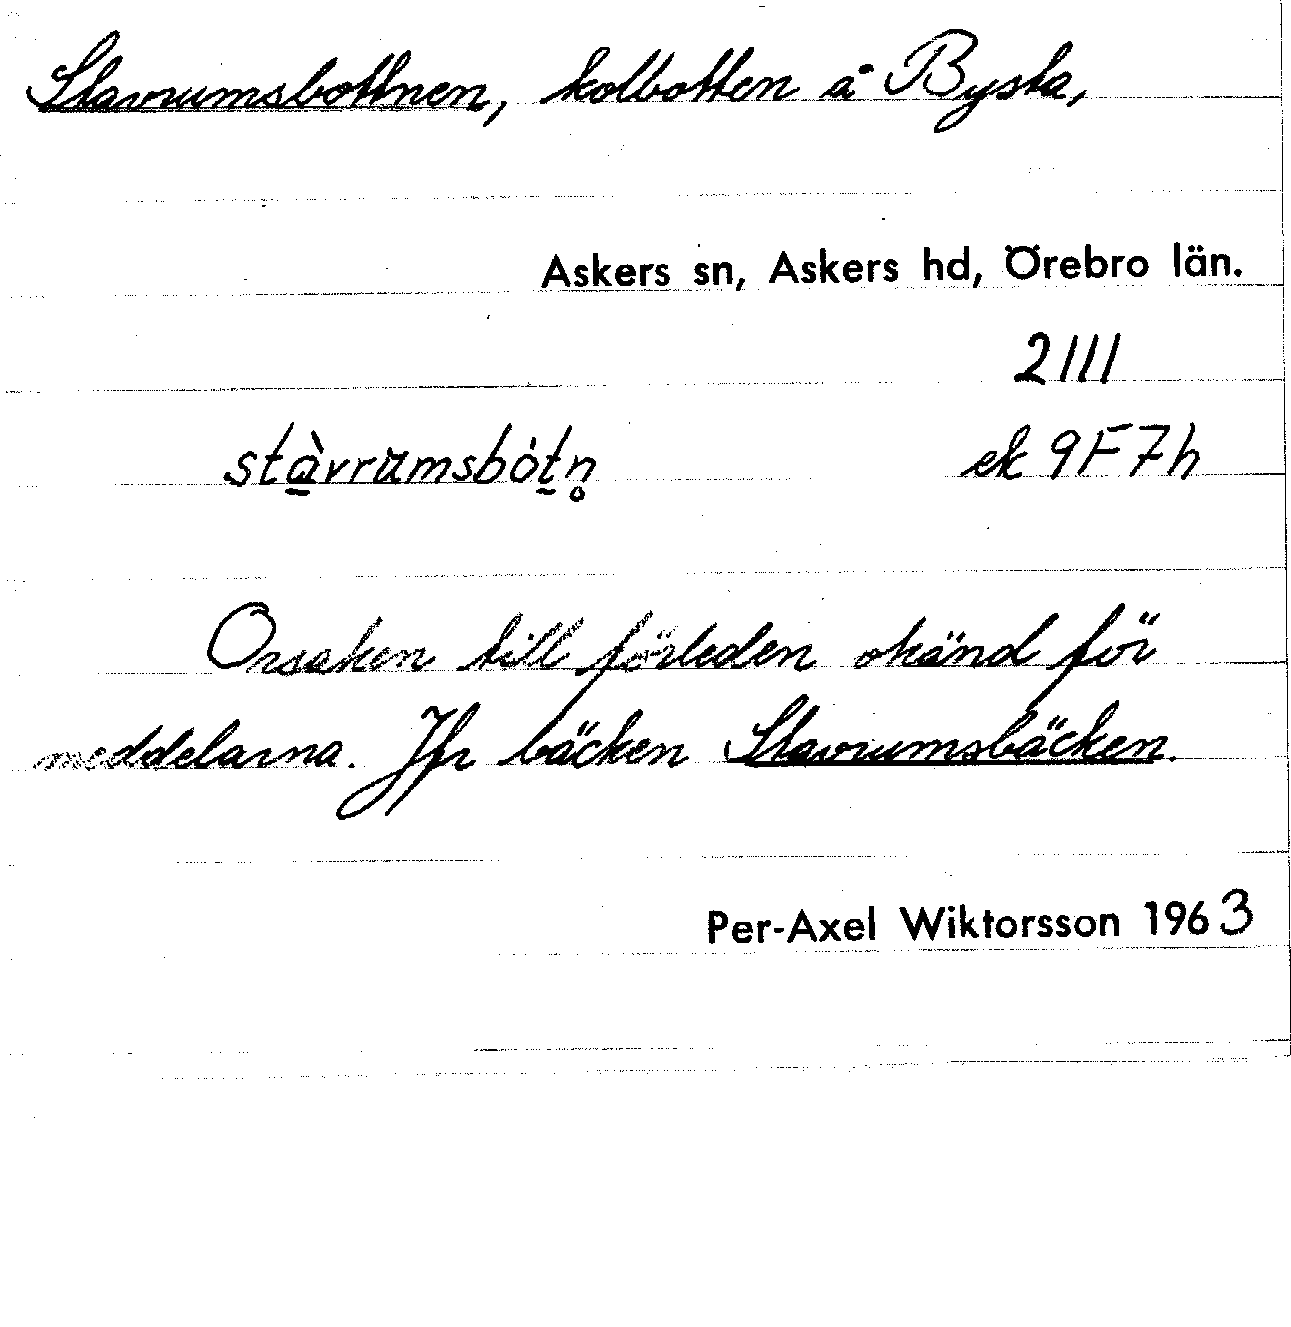 Stavrumsbottnen, kolbotten å Bysta,
Askers sn, Askers hd, Örebro län.
2111
stàvrumsbòtn̥
ek 9F7h
Orsaken till förleden okänd för
meddelarna. Jfr bäcken Stavrumsbäcken.
Per-Axel Wiktorsson 1963